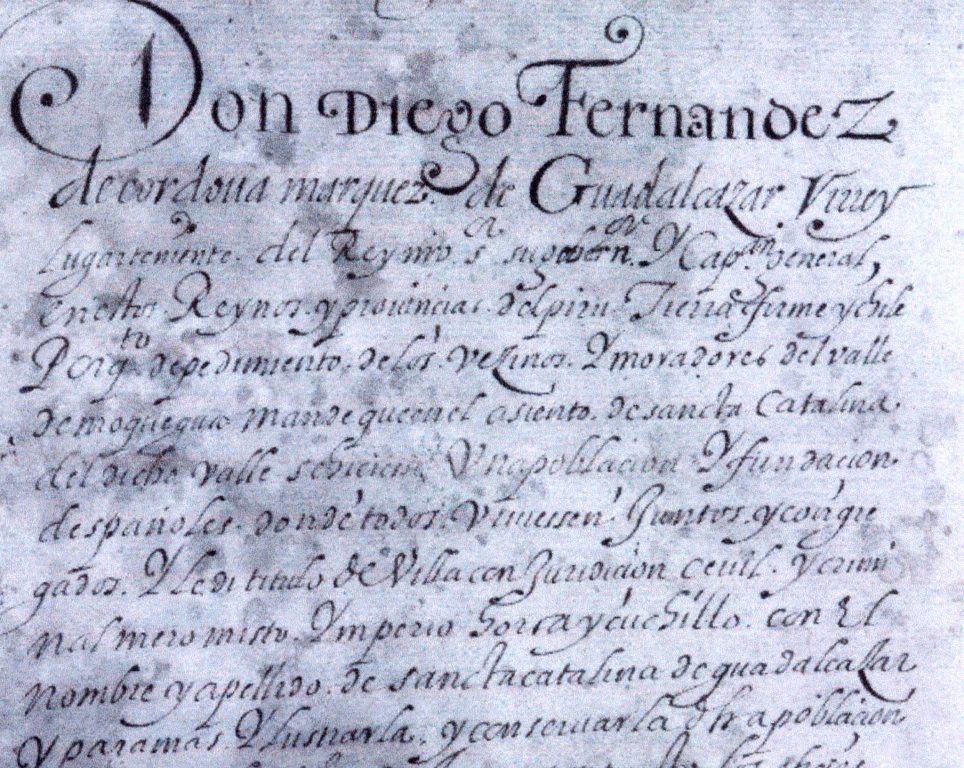 Don Diego Fernandez
de cordova marquez. de Guadalcazar Virrey
Lugarteniente. del Rey nro. sr. su govern.or Y Cap.an General,
en estos Reynos. y provincias. del piru Tierra firme y chile
Por q.to de pedimiento. de los. vezinos. Y moradores del valle
de moquegua mande que en el asiento. de sancta Catalina.
del dicho valle se hiciese Vna poblacion Y fundacion
de españoles. donde todos. Viviessen Juntos. y congre
gados. Y le di titulo de Villa con Juridicion cevil. y crimi
nal mero misto. Ymperio horca y cuchillo. con El
nombre y apellido. de sancta catalina de guadalcazar
Y para mas. Ylustrarla. y conservar la dha poblacion